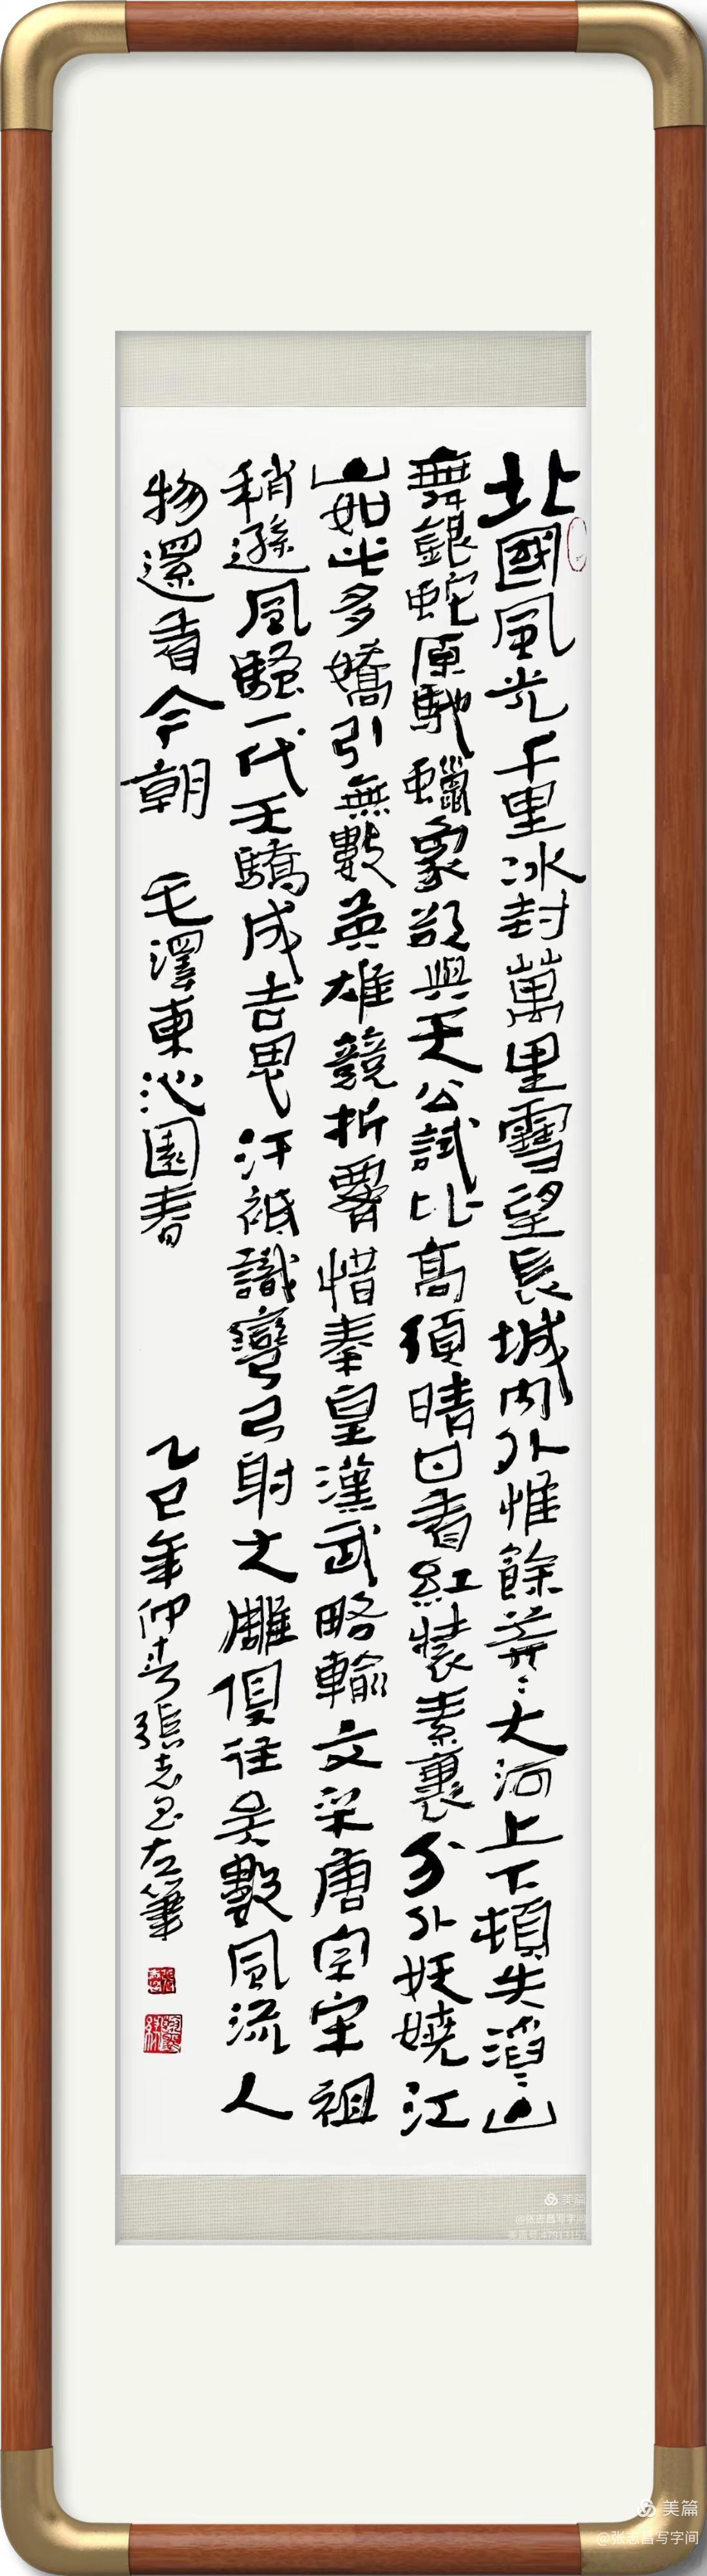 北國風光千里冰封萬里雪望長城内外惟餘莽〻大河上下頓失滔〻山
舞銀蛇原馳蠟象欲與天公試比高須晴日看紅裝素裹分外妖嬈江
山如此多嬌引無數英雄競折腰惜秦皇漢武略輸文采唐宗宋祖
稍遜風騷一代天驕成吉思汗祇識彎弓射大雕俱往矣數風流人
物還看今朝 毛澤東沁園春 乙巳年仲春張志昌左筆
美篇
@张志昌写字间
美篇
@张志昌写字间